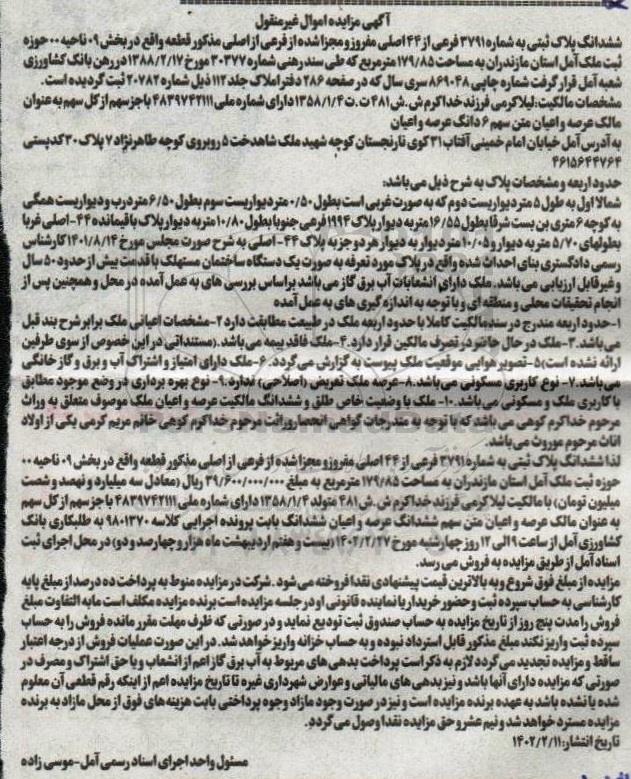 آگهی مزایده اموال غیرمنقول
ششدانگ پلاک ثبتی به شماره ۳۷۹۱ فرعی از ۴۴ اصلی مفروز و مجزا شده از فرعی از اصلی مذکور قطعه واقع در بخش ۰۹ ناحیه ۰۰ حوزه
ثبت ملک آمل استان مازندران به مساحت ۱۷۹/۸۵ مترمربع که طی سند رهنی شماره ۳۰۳۷۷ مورخ ۱۳۸۸/۲/۱۷ در رهن بانک کشاورزی
شعبه آمل قرار گرفت شماره چاپی ۸۶۹۰۴۸ سری سال که در صفحه ۲۸۶ دفتر املاک جلد ۱۱۲ ذیل شماره ۲۰۷۸۲ ثبت گردیده است.
مشخصات مالکیت: لیلا کرمی فرزند خداکرم ش.ش ۴۸۱ ت.ت ۱۳۵۸/۱/۴ دارای شماره ملی ۴۸۳۹۷۴۲۱۱۱ با جز سهم از کل سهم به عنوان
مالک عرصه و اعیان متن سهم ۶ دانگ عرصه و اعیان
به آدرس آمل خیابان امام خمینی آفتاب ۳۱ کوی نارنجستان کوچه شهید ملک شاهدخت ۵ روبروی کوچه طاهرنژاد ۷ پلاک ۳۰ کدپستی
۴۶۱۵۶۴۴۷۶۴
حدود اربعه و مشخصات پلاک به شرح ذیل می‌باشد:
شمالا اول به طول ۵ متر دیواریست دوم که به صورت غربی است بطول ۰/۵۰ متر دیواریست سوم بطول ۶/۵۰ متر درب و دیواریست همگی
به کوچه ۶ متری بن بست شرقا بطول ۱۶/۵۵ متر به دیوار پلاک ۱۹۹۴ فرعی جنوبا بطول ۱۰/۸۰ متر به دیوار پلاک باقیمانده ۴۴- اصلی غربا
بطولهای ۵/۷۰ متر به دیوار و ۱۰/۰۵ متر دیوار به دیوار هر دو جز به پلاک ۴۴- اصلی به شرح صورت مجلس مورخ ۱۴۰۱/۸/۱۴ کارشناس
رسمی دادگستری بنای احداث شده واقع در پلاک مورد تعرفه به صورت یک دستگاه ساختمان مستهلک با قدمت بیش از حدود ۵۰ سال
و غیر قابل ارزیابی می باشد. ملک دارای انشعابات آب برق گاز می باشد براساس بررسی های به عمل آمده در محل و همچنین پس از
انجام تحقیقات محلی و منطقه ای و با توجه به اندازه گیری های به عمل آمده
۱- حدود اربعه مندرج در سند مالکیت کاملا با حدود اربعه ملک در طبیعت مطابقت دارد ۲- مشخصات اعیانی ملک برابر شرح بند قبل
می باشد. ۳- ملک در حال حاضر در تصرف مالکین قرار دارد. ۴- ملک فاقد بیمه می باشد. (مستنداتی در این خصوص از سوی طرفین
ارائه نشده است) ۵- تصویر هوایی موقعیت ملک پیوست به گزارش می گردد. ۶- ملک دارای امتیاز و اشتراک آب و برق و گاز خانگی
می باشد. ۷- نوع کاربری مسکونی می باشد. ۸- عرصه ملک تعریض (اصلاحی) ندارد. ۹- نوع بهره برداری در وضع موجود مطابق
با کاربری ملک و مسکونی می باشد. ۱۰- ملک با وضعیت خاص طلق و ششدانگ مالکیت عرصه و اعیان ملک موصوف متعلق به وراث
مرحوم خداکرم کوهی می باشد که با توجه به مندرجات گواهی انحصار وراثت مرحوم خداکرم کوهی خانم مریم کرمی یکی از اولاد
اناث مرحوم موروث می باشد.
لذا ششدانگ پلاک ثبتی به شماره ۳۷۹۱ فرعی از ۴۴ اصلی مفروز و مجزا شده از فرعی از اصلی مذکور قطعه واقع در بخش ۰۹ ناحیه ۰۰
حوزه ثبت ملک آمل استان مازندران به مساحت ۱۷۹/۸۵ مترمربع به مبلغ ۳۹/۶۰۰/۰۰۰/۰۰۰ ریال (معادل سه میلیارد و نهصد و شصت
میلیون تومان) با مالکیت لیلا کرمی فرزند خداکرم ش.ش ۴۸۱ متولد ۱۳۵۸/۱/۴ دارای شماره ملی ۴۸۳۹۷۴۲۱۱۱ با جز سهم از کل سهم
به عنوان مالک عرصه و اعیان متن سهم ششدانگ عرصه و اعیان ششدانگ بابت پرونده اجرایی کلاسه ۹۸۰۱۳۷۰ به طلبکاری بانک
کشاورزی آمل از ساعت ۹ الی ۱۲ روز چهارشنبه مورخ ۱۴۰۲/۲/۲۷ (بیست و هفتم اردیبهشت ماه هزار و چهارصد و دو) در محل اجرای ثبت
اسناد آمل از طریق مزایده به فروش می رسد.
مزایده از مبلغ فوق شروع و به بالاترین قیمت پیشنهادی نقدا فروخته می شود. شرکت در مزایده منوط به پرداخت ده درصد از مبلغ پایه
کارشناسی به حساب سپرده ثبت و حضور خریدار یا نماینده قانونی او در جلسه مزایده است برنده مزایده مکلف است مابه التفاوت مبلغ
فروش را مدت پنج روز از تاریخ مزایده به حساب صندوق ثبت تودیع نماید و در صورتی که ظرف مهلت مقرر مانده فروش را به حساب
سپرده ثبت واریز نکند مبلغ مذکور قابل استرداد نبوده و به حساب خزانه واریز خواهد شد. در این صورت عملیات فروش از درجه اعتبار
ساقط و مزایده تجدید می گردد لازم به ذکر است پرداخت بدهی های مربوط به آب برق گاز اعم از انشعاب و یا حق اشتراک و مصرف در
صورتی که مزایده دارای آنها باشد و نیز بدهی های مالیاتی و عوارض شهرداری غیره تا تاریخ مزایده اعم از اینکه رقم قطعی آن معلوم
شده یا نشده باشد به عهده برنده مزایده است و نیز در صورت وجود مازاد وجوه پرداختی بابت هزینه های فوق از محل مازاد به برنده
مزایده مسترد خواهد شد و نیم عشر و حق مزایده نقدا وصول می گردد.
تاریخ انتشار: ۱۴۰۲/۲/۱۱
مسئول واحد اجرای اسناد رسمی آمل- موسی زاده